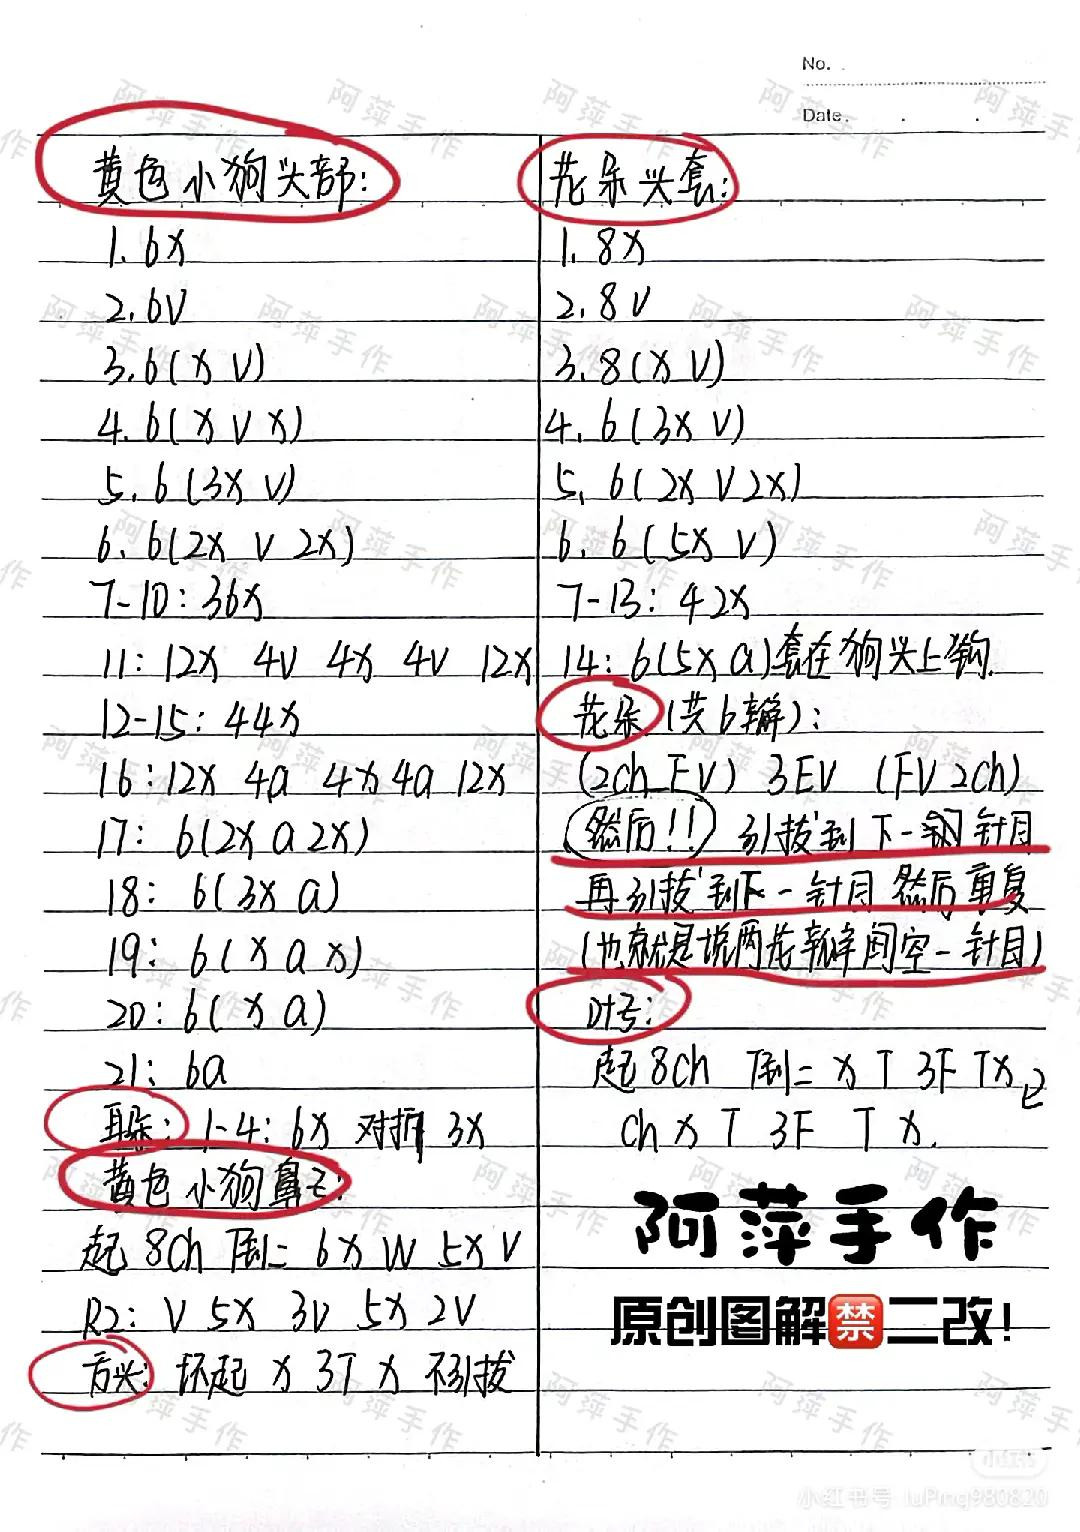 No.
Date.
黄色小狗头部:
1. 6X
2. 6V
3. 6(X V)
4. 6(X V X)
5. 6(3X V)
6. 6(2X V 2X)
7-10: 36X
11: 12X 4V 4X 4V 12X
12-15: 44X
16: 12X 4a 4X 4a 12X
17: 6(2X a 2X)
18: 6(3X a)
19: 6(X a X)
20: 6(X a)
21: 6a
耳朵: 1-4: 6X 对折 3X
黄色小狗鼻子:
起 8ch 倒二 6X W 5X V
R2: V 5X 3V 5X 2V
环起 X 3T X 不引拔
花朵头套:
1. 8X
2. 8V
3. 8(X V)
4. 6(3X V)
5. 6(2X V 2X)
6. 6(5X V)
7-13: 42X
14: 6(5X a)套在狗头上钩.
花朵(共6瓣):
(2ch FV) 3EV (FV 2ch)
然后!! 引拔到下一针目
再引拔到下一针目 然后重复
(也就是说两花瓣间空一针目)
叶子:
起8ch 倒二 X T 3F TX
ch X T 3F T X.
阿萍手作
原创图解禁二改!
小红书
小红书号: luPing980820
阿萍手作